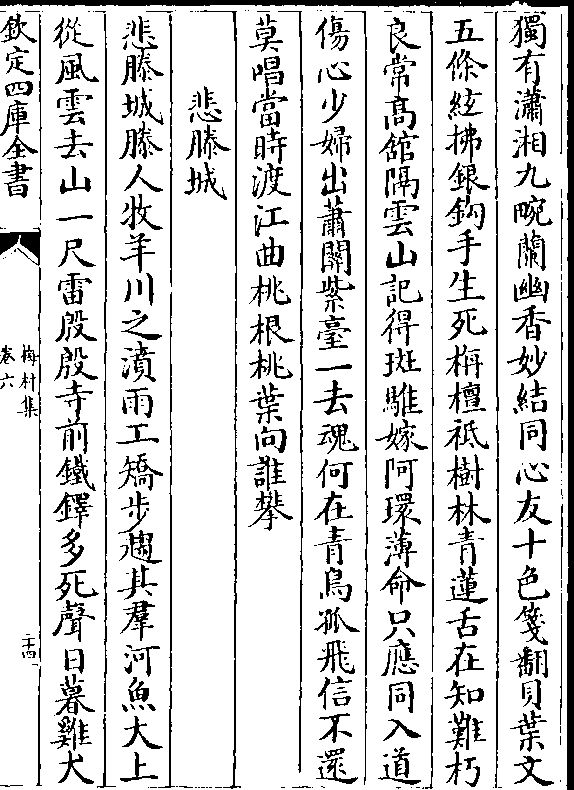 獨有瀟湘九畹蘭幽香妙結同心友十色箋翻貝葉文
五條絃拂銀鈎手生死栴檀祗樹林青蓮舌在知難朽
良常髙舘隔雲山記得斑騅嫁阿環薄命只應同入道
傷心少婦出蕭關紫臺一去魂何在青鳥孤飛信不還
莫唱當時渡江曲桃根桃葉向誰攀
悲滕城
悲滕城滕人牧羊川之濆雨工矯步趨其羣河魚大上
從風雲去山一尺雷殷殷寺前鐵鐸多死聲日暮雞犬
欽定四庫全書
梅村集
卷六
二十四